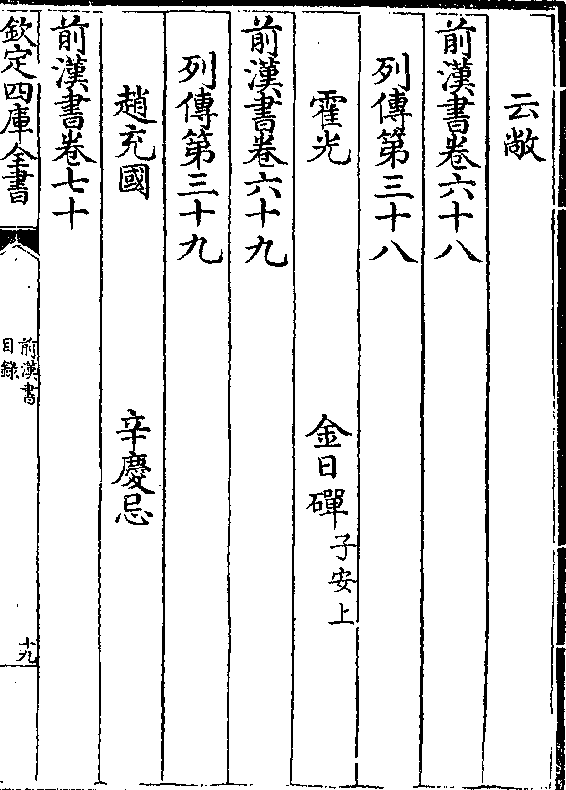 云敞
前漢書卷六十八
列傳第三十八
霍光　金日磾子安上
前漢書卷六十九
列傳第三十九
趙充國　辛慶忌
前漢書卷七十
欽定四庫全書
前漢書
目錄
十九